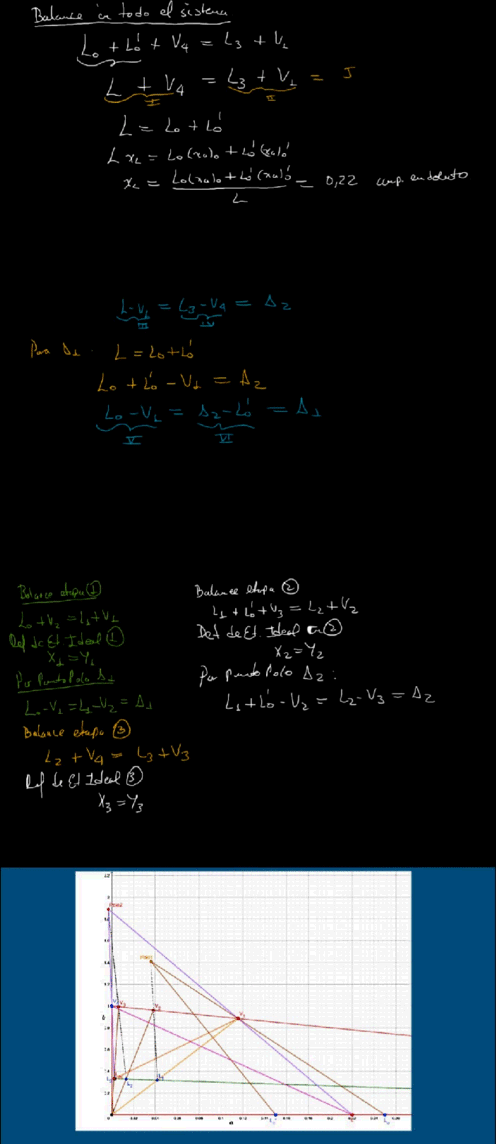 Balance en todo el sistema
L₀ + L₀' + V₄ = L₃ + V₁
L + V₄ = L₃ + V₁ = J
I II
L = L₀ + L₀'
L x_L = L₀(xₐ)₀ + L₀'(xₐ)₀'
x_L = L₀(xₐ)₀ + L₀'(xₐ)₀' / L = 0,22
L - V₁ = L₃ - V₄ = Δ₂
III IV
Para Δ₁: L = L₀ + L₀'
L₀ + L₀' - V₁ = Δ₂
L₀ - V₁ = Δ₂ - L₀' = Δ₁
V VI
Balance etapa ①
L₀ + V₂ = L₁ + V₁
Def de Et Ideal ①
X₁ = Y₁
Por Punto Polo Δ₁
L₀ - V₁ = L₁ - V₂ = Δ₁
Balance etapa ③
L₂ + V₄ = L₃ + V₃
Def de Et Ideal ③
X₃ = Y₃
Balance etapa ②
L₁ + L₀' + V₃ = L₂ + V₂
Def de Et. Ideal ②
X₂ = Y₂
Por Punto Polo Δ₂:
L₁ + L₀' - V₂ = L₂ - V₃ = Δ₂